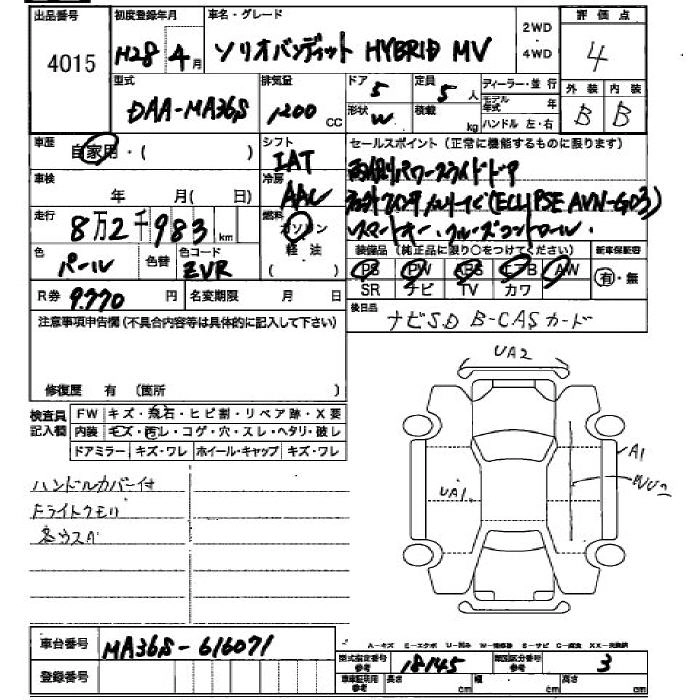 出品番号 初度登録年月 車名・グレード 2WD・4WD 評価点
4015 H28年4月 ソリオバンディット HYBRID MV 4
型式 排気量 ドア 5 定員 5人 ディーラー・並行 外装 内装
DAA-MA36S 1200cc 形状 W 積載 kg モデル年式 年 ハンドル 左・右 B B
車歴 自家用・( ) シフト IAT セールスポイント(正常に機能するものに限ります)
車検 年 月(日) 冷房 AAC 両側パワースライドドア
走行 8万2千983km 燃料 ガソリン 軽油 (ECLIPSE AVN-G03)
スマートキー・クルーズコントロール
色 パール 色替 色コード ZVR 装備品(純正品に限り○をつけてください) 新車保証書
PS PW ABS エアB AW 有・無
R券 9.770円 名変期限 月 日 SR ナビ TV カワ
注意事項申告欄(不具合内容等は具体的に記入して下さい) 後日品 ナビSD B-CASカード
修復歴 有 (箇所 )
検査員記入欄 FW キズ・飛石・ヒビ割・リペア跡・X要
内装 キズ・汚レ・コゲ・穴・スレ・ヘタリ・破レ
ドアミラー キズ・ワレ ホイール・キャップ キズ・ワレ
UA2
A1
UA1
ハンドルカバー付
F.ライトクモリ
車台番号 MA36S-616071
A-キズ E-エクボ U-凹み W-補修跡 S-サビ C-腐食 XX-交換済
登録番号 型式指定番号 参考 18145 類別区分番号 参考 3
車車証現車 参考 長さ cm 幅 cm 高さ cm